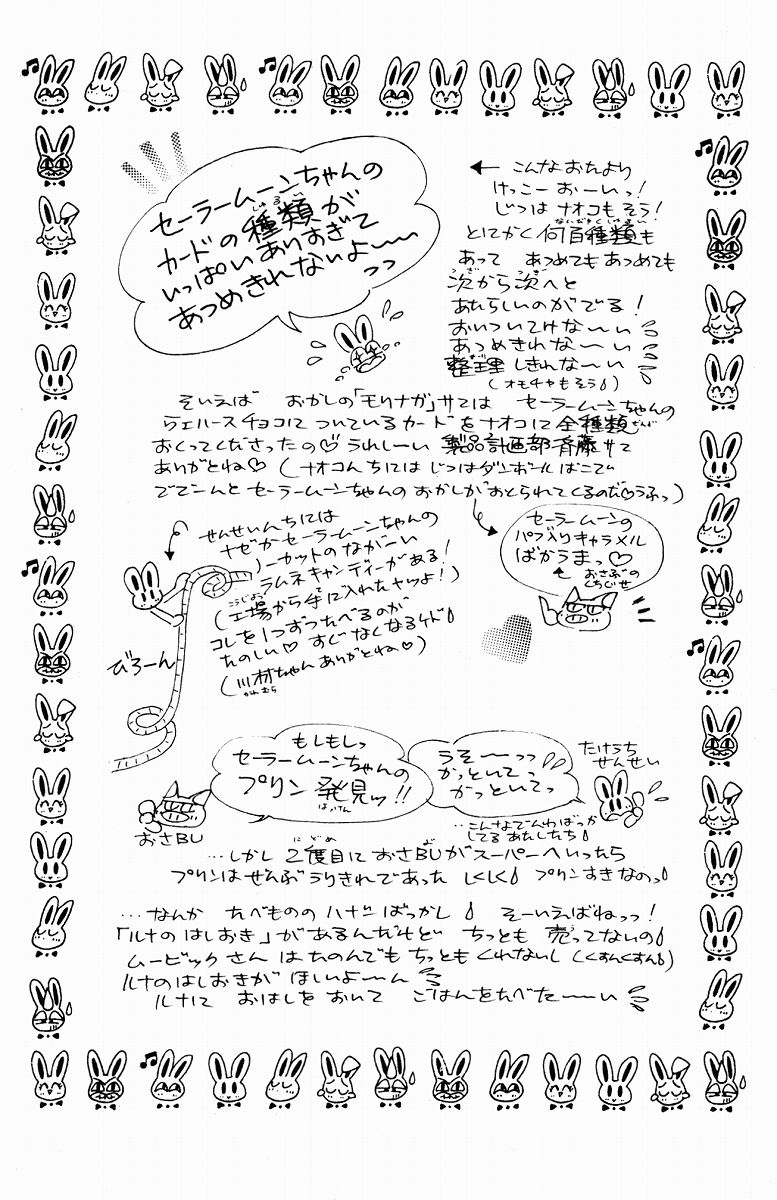 セーラームーンちゃんの
カードの種類が
しゅるい
いっぱいありすぎて
あつめきれないよー〜〜
っっ
← こんなおたより
けっこーおーいっ!
じつは ナオコもそう!
なんびゃくしゅるい
とにかく 何百種類も
あって あつめてもあつめても
つぎ つぎ
次から次へと
あたらしいのがでる!
おいついてけな〜〜い
あつめきれな〜〜い
せいり
整理しきれな〜〜い
(オモチャもそう)
そいえば おかしの「モリナガ」サンは セーラームーンちゃんの
ウェハースチョコについているカードをナオコに全種類ぜんぶ
おくってくださったの♡ うれしーい 製品計画部 斉藤サン
ありがとね♡ (ナオコんちには じつはダンボールばこで
でで〜んとセーラームーンちゃんのおかしがおくられてくるのだ♡うふっ)
せんせいんちには
ナゼかセーラームーンちゃんの
ノーカットのながーい
ラムネキャンディーがある!
こうじょう
(工場から手に入れたヤツよ!)
コレを1つずつたべるのが
たのしい♡ すぐなくなるケド
(川村ちゃんありがとね♡)
かわむら
びろーん
セーラームーンの
パフ入りキャラメル
ばかうまっ♡
おさぶの
くちぐせ
もしもしっ
セーラームーンちゃんの
プリン発見ッ!!
はっけん
おさBU
うそ〜〜っっ
かっといてっ
かっといてっ
たけうち
せんせい
…こんなでんわばっか
してるあたしたち
にどめ
…しかし 2度目に おさBUがスーパーへいったら
プリンはぜんぶうりきれであった しくしく プリンすきなのっ
…なんか たべもののハナシばっかし そーいえばねっっ!
「ルナのはしおき」があるんだけど ちっとも 売ってないの
ムービックさん はたのんでもちっともくれないし (くすんくすん)
ルナのはしおきが ほしいよ〜〜ん
ルナに おはしをおいて ごはんをたべた〜〜い